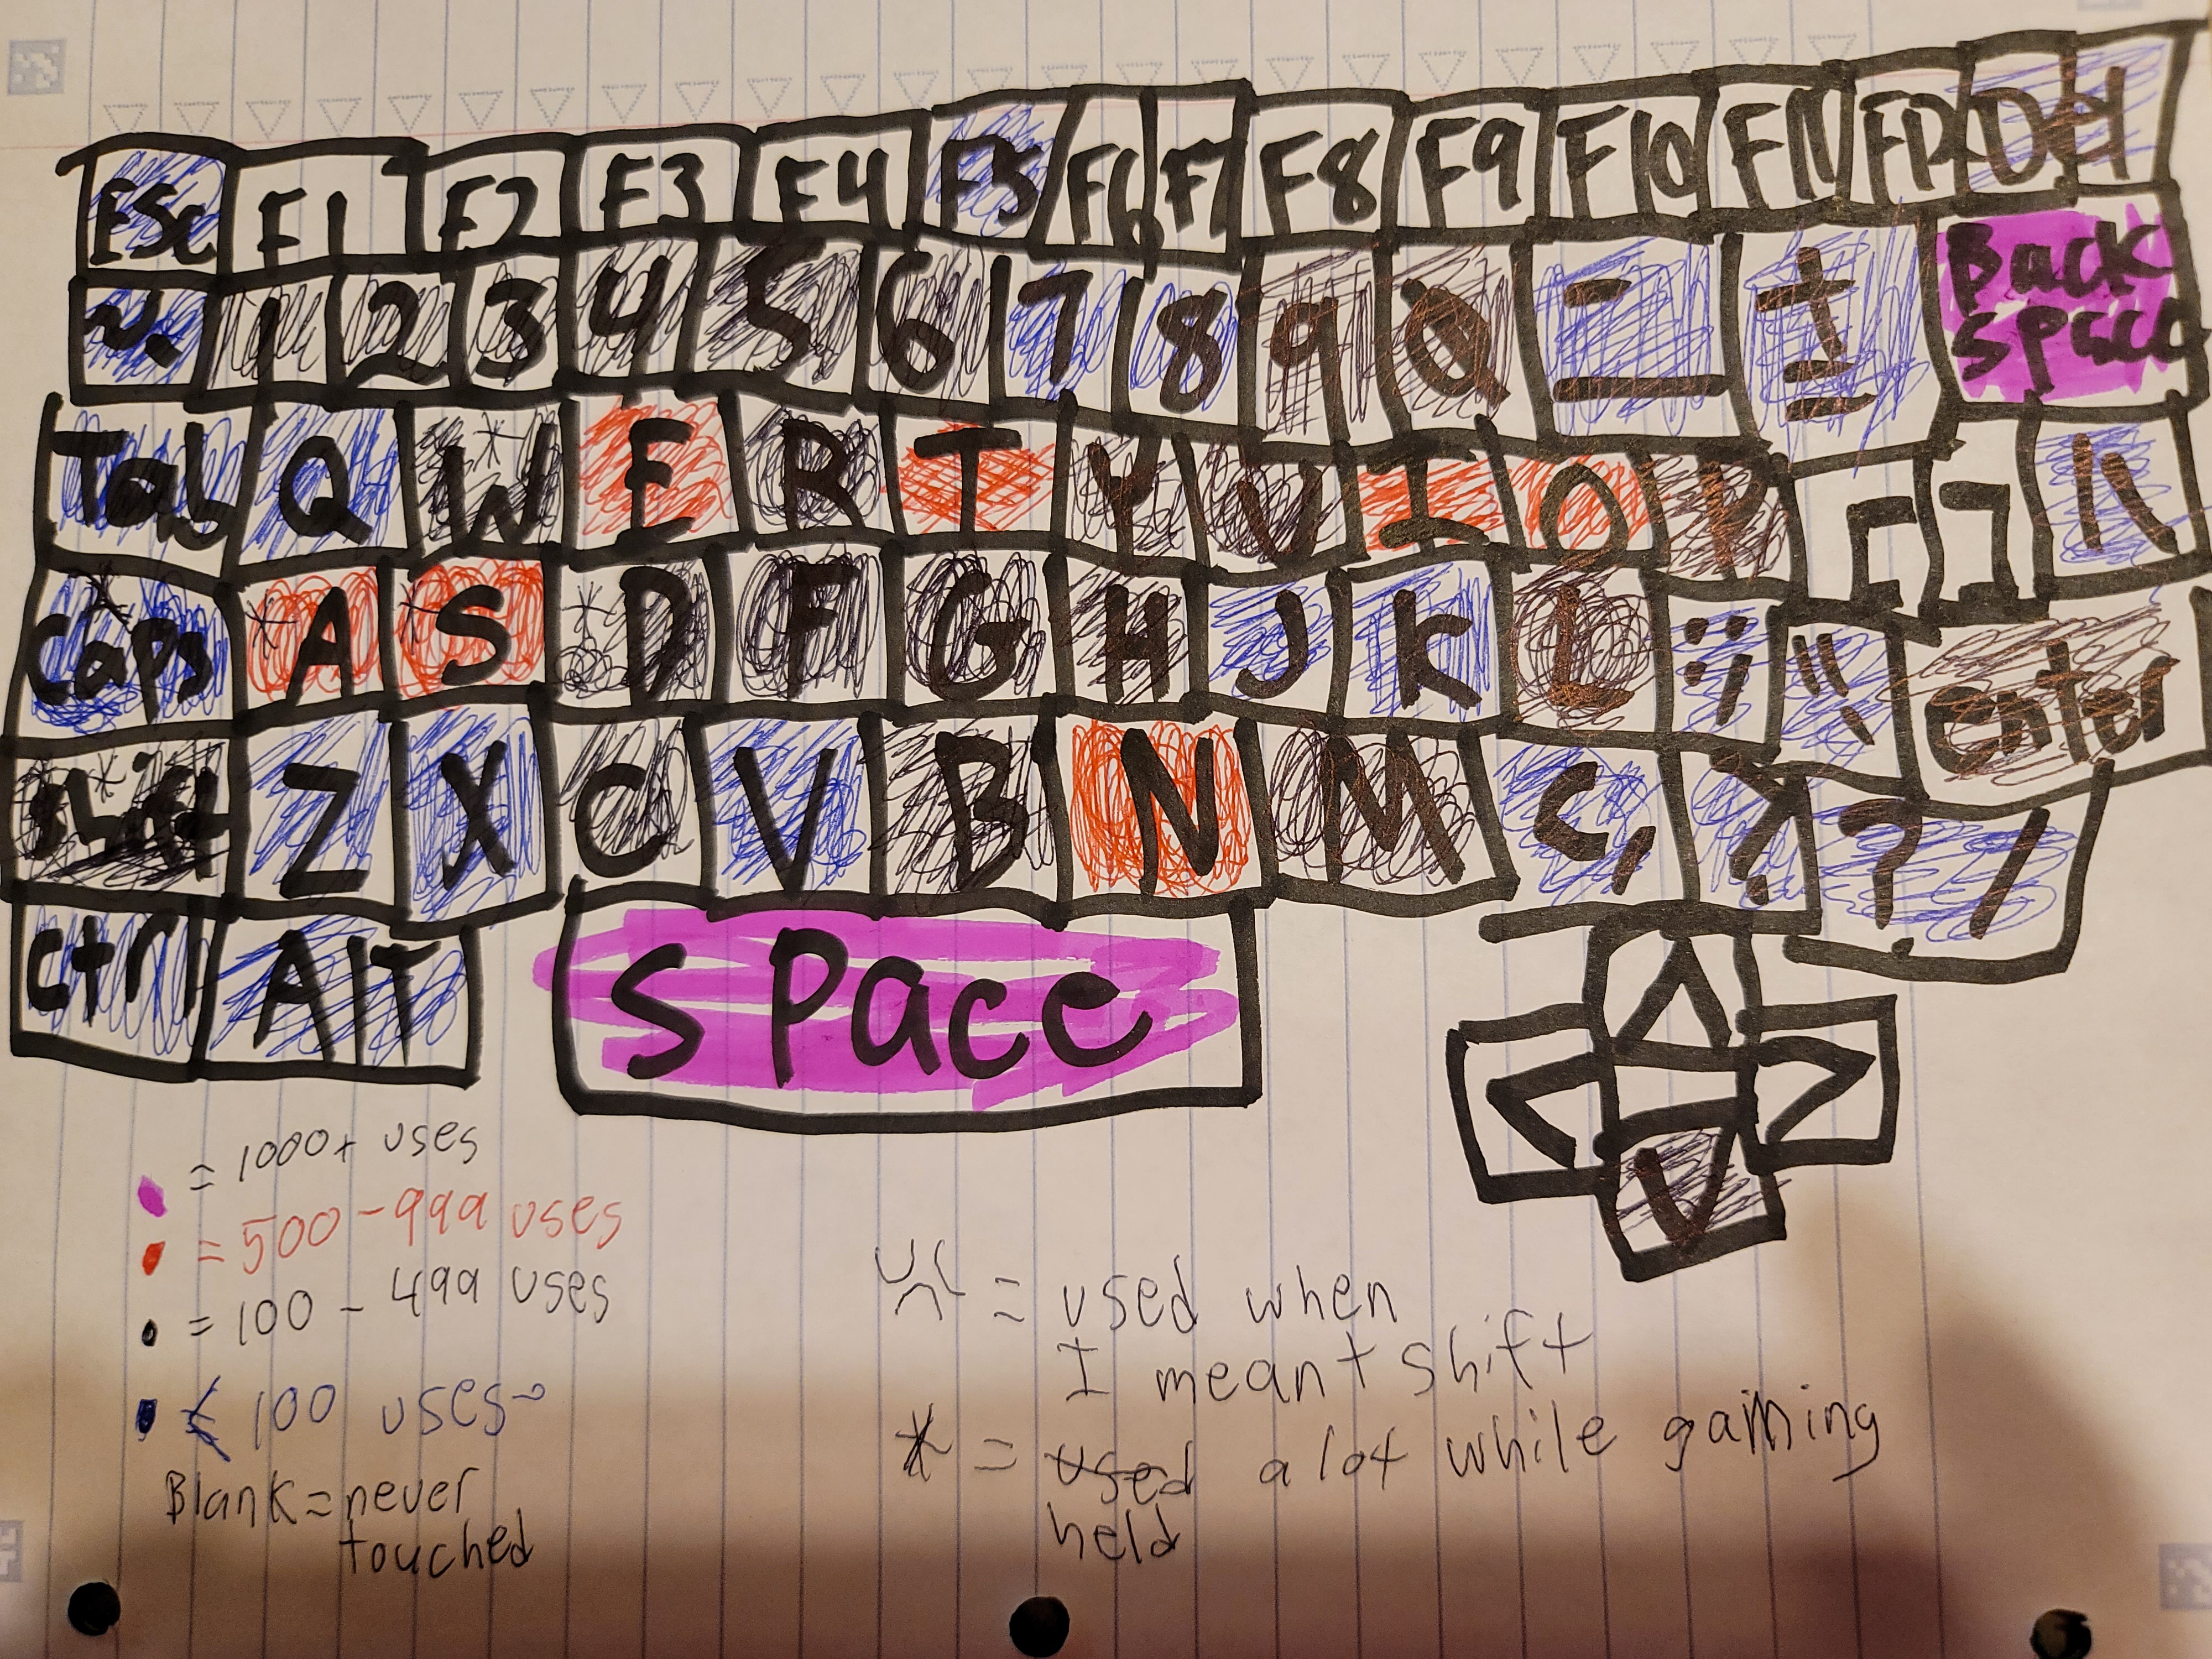 Esc F1 F2 F3 F4 F5 F6 F7 F8 F9 F10 F11 F12
~. 1 2 3 4 5 6 7 8 9 0 - _ + = Back
Space
Tab Q W E R T Y U I O P [ ] | \
Caps * A * S * D F G H J K L : ; " Enter
Shift * Z X C V B N M < , > . ? /
Ctrl Alt Space < ^ V >
= 1000+ uses
= 500-999 uses
= 100 - 499 uses
< 100 uses
Blank = never
touched
= used when
I meant shift
* = used a lot while gaming
held